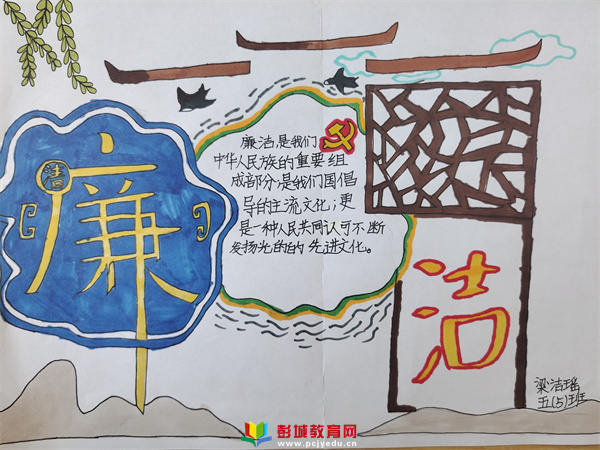 廉
廉洁,是我们
中华人民族的重要组
成部分;是我们国倡
导的主流文化;更
是一种人民共同认可不断
发扬光的的先进文化。
洁
梁洁瑶
五(5)班
彭城教育网
www.pcjyedu.cn